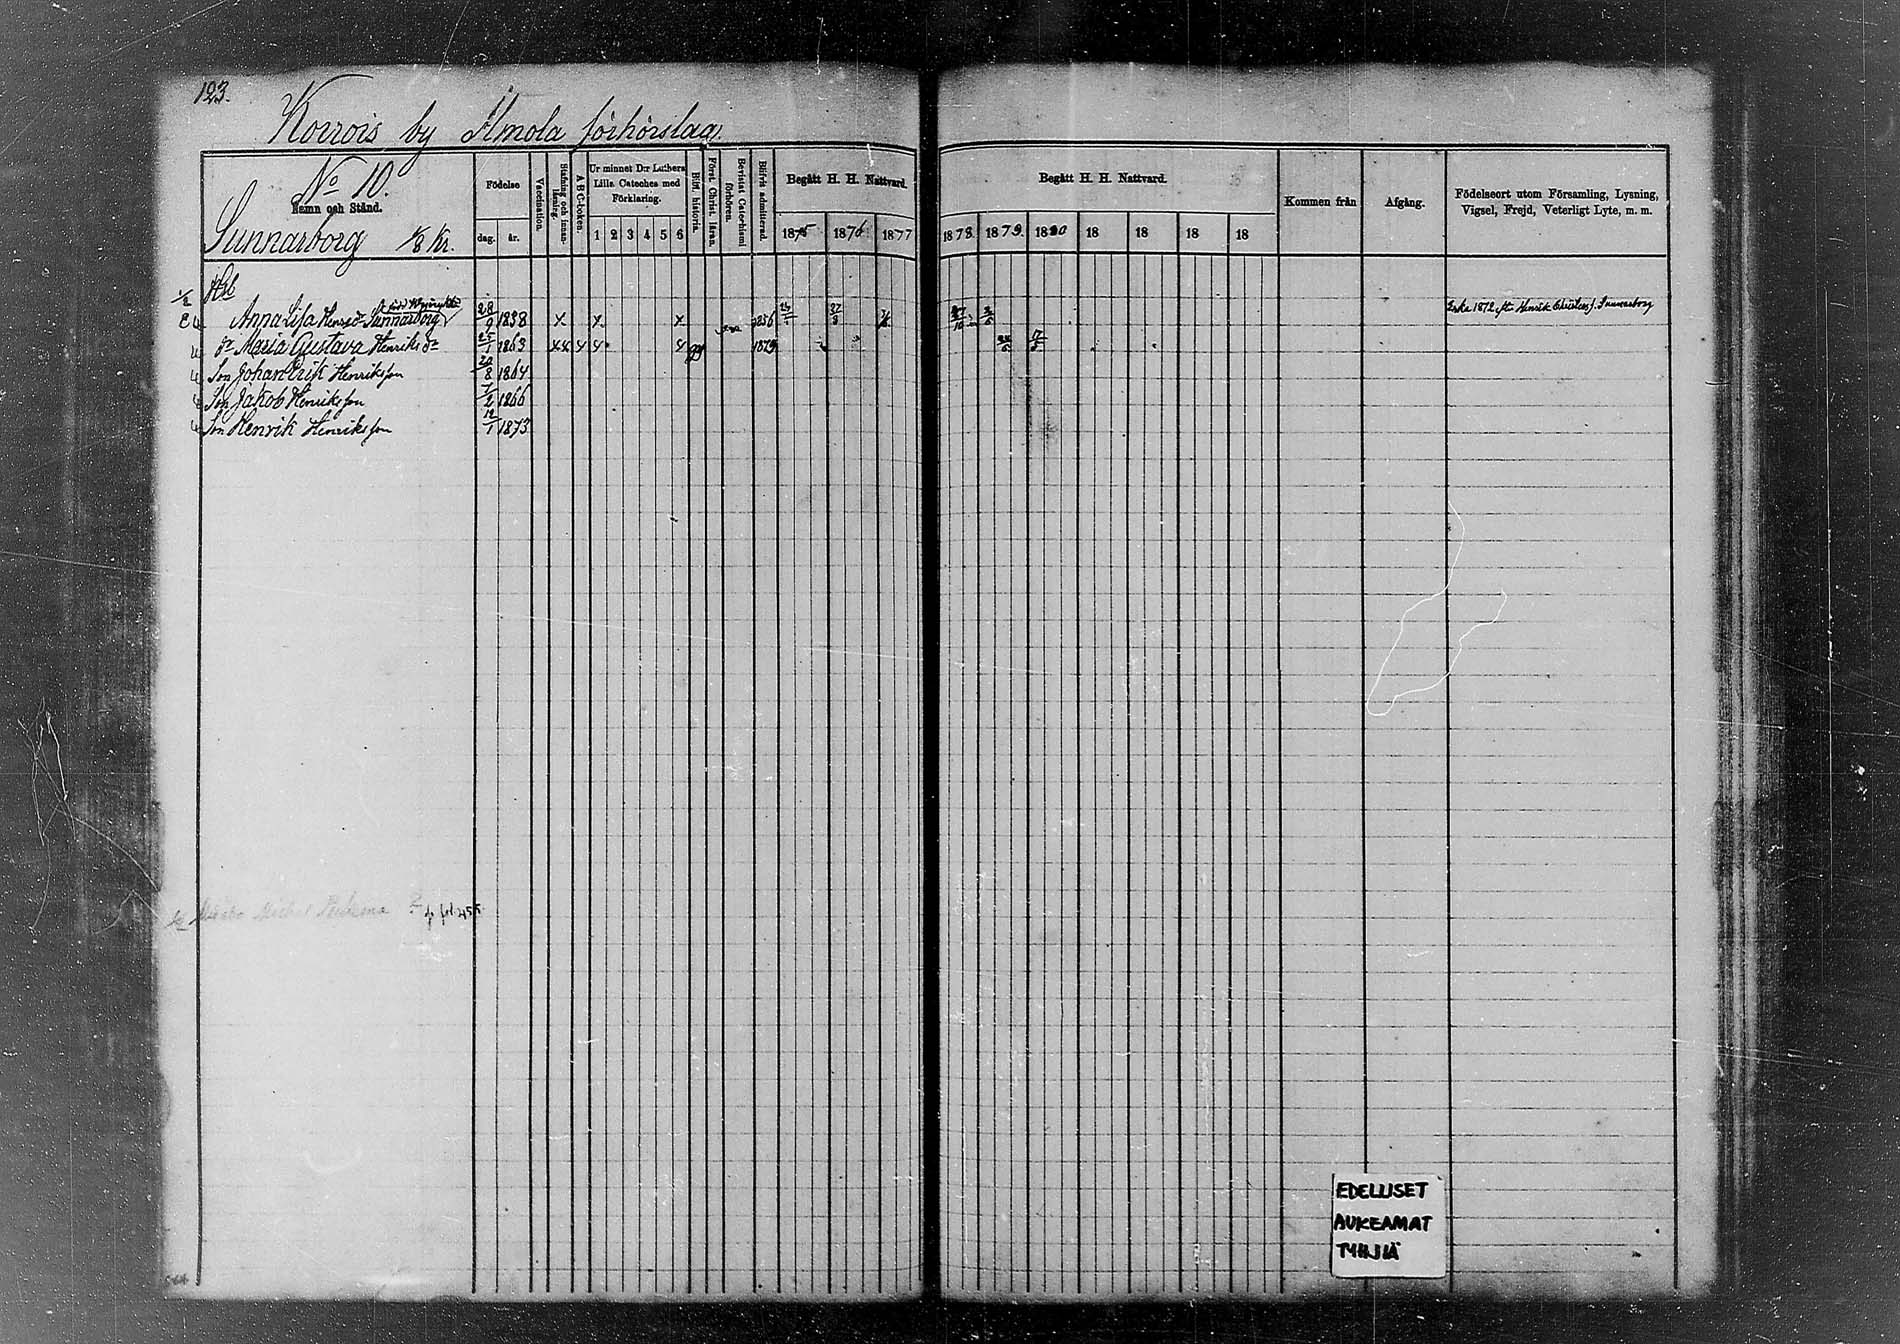 123.
Korrois by Ämola förhörslag.
No 10.
Namn och Stånd.
Sunnarborg Kr.
Födelse
dag. år.
Vaccination.
Stafning och innanläsning.
A B C-boken.
Ur minnet D:r Luthers Lilla Cateches med Förklaring.
1 2 3 4 5 6
Bibl. historia.
Först. Christ. läran.
Bevistat Catechismi förhören.
Blifvit admitterad.
Begått H. H. Nattvard.
1875 1876 1877
Begått H. H. Nattvard.
1878. 1879. 1880 18 18 18 18
Kommen från
Afgång.
Födelseort utom Församling, Lysning, Vigsel, Frejd, Veterligt Lyte, m. m.
Anna Lisa Sunnarborg 28/9 1838 Enka 1872 Henrik Sunnarborg
dr Maria Gustava Henriks dr 1863 1879
Son Johan Erik Henriksson 20/8 1864
Son Jakob Henriksson 1866
Son Henrik Henriksson 12/1 1873
EDELLISET
AUKEAMAT
TYHJIÄ